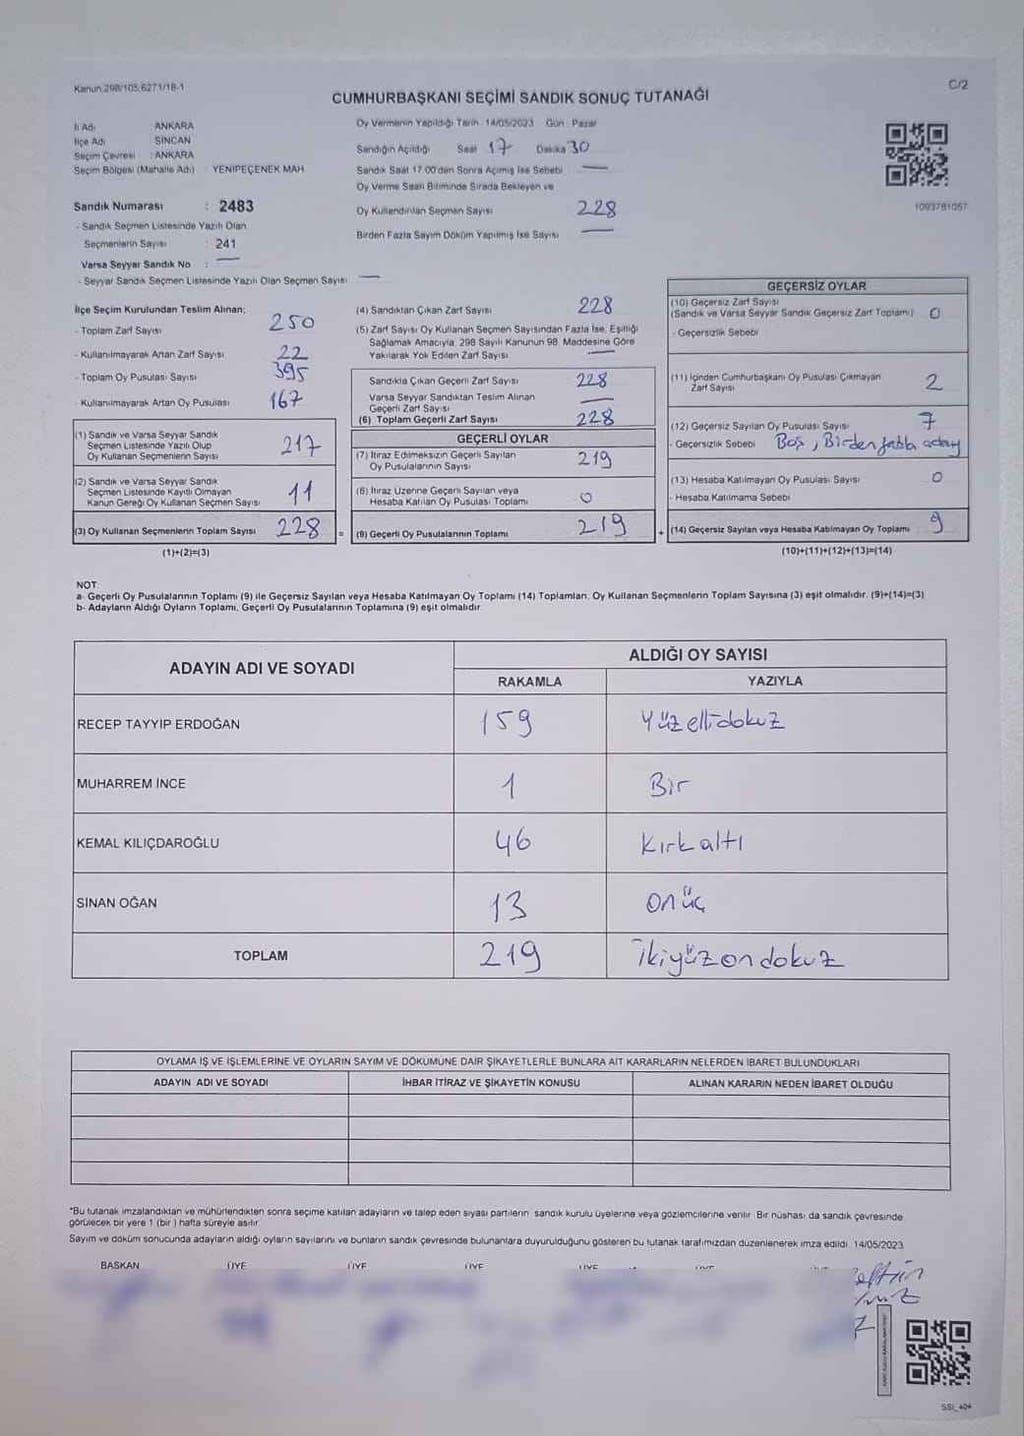 Kanun 298/105,6271/18-1
C/2
CUMHURBAŞKANI SEÇİMİ SANDIK SONUÇ TUTANAĞI
İl Adı ANKARA
İlçe Adı SİNCAN
Seçim Çevresi : ANKARA
Seçim Bölgesi (Mahalle Adı) YENİPEÇENEK MAH.
Sandık Numarası : 2483
- Sandık Seçmen Listesinde Yazılı Olan
Seçmenlerin Sayısı : 241
Varsa Seyyar Sandık No : —
- Seyyar Sandık Seçmen Listesinde Yazılı Olan Seçmen Sayısı —
Oy Vermenin Yapıldığı Tarih 14/05/2023 Gün : Pazar
Sandığın Açıldığı Saat 17 Dakika 30
Sandık Saat 17.00'den Sonra Açılmış İse Sebebi —
Oy Verme Saati Bitiminde Sırada Bekleyen ve
Oy Kullandırılan Seçmen Sayısı 228
Birden Fazla Sayım Döküm Yapılmış İse Sayısı —
1093781057
İlçe Seçim Kurulundan Teslim Alınan;
- Toplam Zarf Sayısı 250
- Kullanılmayarak Artan Zarf Sayısı 22
- Toplam Oy Pusulası Sayısı 395
- Kullanılmayarak Artan Oy Pusulası 167
(1) Sandık ve Varsa Seyyar Sandık
Seçmen Listesinde Yazılı Olup
Oy Kullanan Seçmenlerin Sayısı 217
(2) Sandık ve Varsa Seyyar Sandık
Seçmen Listesinde Kayıtlı Olmayan
Kanun Gereği Oy Kullanan Seçmen Sayısı 11
(3) Oy Kullanan Seçmenlerin Toplam Sayısı 228
(1)+(2)=(3)
(4) Sandıktan Çıkan Zarf Sayısı 228
(5) Zarf Sayısı Oy Kullanan Seçmen Sayısından Fazla İse, Eşitliği
Sağlamak Amacıyla, 298 Sayılı Kanunun 98. Maddesine Göre
Yakılarak Yok Edilen Zarf Sayısı —
Sandıkta Çıkan Geçerli Zarf Sayısı 228
Varsa Seyyar Sandıktan Teslim Alınan
Geçerli Zarf Sayısı —
(6) Toplam Geçerli Zarf Sayısı 228
GEÇERLİ OYLAR
(7) İtiraz Edilmeksizin Geçerli Sayılan
Oy Pusulalarının Sayısı 219
(8) İtiraz Üzerine Geçerli Sayılan veya
Hesaba Katılan Oy Pusulası Toplamı 0
= (9) Geçerli Oy Pusulalarının Toplamı 219
GEÇERSİZ OYLAR
(10) Geçersiz Zarf Sayısı
(Sandık ve Varsa Seyyar Sandık Geçersiz Zarf Toplamı) 0
- Geçersizlik Sebebi
(11) İçinden Cumhurbaşkanı Oy Pusulası Çıkmayan
Zarf Sayısı 2
(12) Geçersiz Sayılan Oy Pusulası Sayısı 7
- Geçersizlik Sebebi Boş, Birden fazla aday
(13) Hesaba Katılmayan Oy Pusulası Sayısı 0
- Hesaba Katılmama Sebebi
+ (14) Geçersiz Sayılan veya Hesaba Katılmayan Oy Toplamı 9
(10)+(11)+(12)+(13)=(14)
NOT:
a- Geçerli Oy Pusulalarının Toplamı (9) ile Geçersiz Sayılan veya Hesaba Katılmayan Oy Toplamı (14) Toplamları, Oy Kullanan Seçmenlerin Toplam Sayısına (3) eşit olmalıdır. (9)+(14)=(3)
b- Adayların Aldığı Oyların Toplamı, Geçerli Oy Pusulalarının Toplamına (9) eşit olmalıdır.
ADAYIN ADI VE SOYADI
ALDIĞI OY SAYISI
RAKAMLA YAZIYLA
RECEP TAYYİP ERDOĞAN 159 Yüzellidokuz
MUHARREM İNCE 1 Bir
KEMAL KILIÇDAROĞLU 46 Kırkaltı
SİNAN OĞAN 13 onüç
TOPLAM 219 İkiyüzondokuz
OYLAMA İŞ VE İŞLEMLERİNE VE OYLARIN SAYIM VE DÖKÜMÜNE DAİR ŞİKAYETLERLE BUNLARA AİT KARARLARIN NELERDEN İBARET BULUNDUKLARI
ADAYIN ADI VE SOYADI İHBAR İTİRAZ VE ŞİKAYETİN KONUSU ALINAN KARARIN NEDEN İBARET OLDUĞU
*Bu tutanak imzalandıktan ve mühürlendikten sonra seçime katılan adayların ve talep eden siyasi partilerin sandık kurulu üyelerine veya gözlemcilerine verilir. Bir nüshası da sandık çevresinde
görülecek bir yere 1 (bir) hafta süreyle asılır.
Sayım ve döküm sonucunda adayların aldığı oyların sayılarını ve bunların sandık çevresinde bulunanlara duyurulduğunu gösteren bu tutanak tarafımızdan düzenlenerek imza edildi. 14/05/2023
BAŞKAN ÜYE ÜYE ÜYE ÜYE
SSI_404